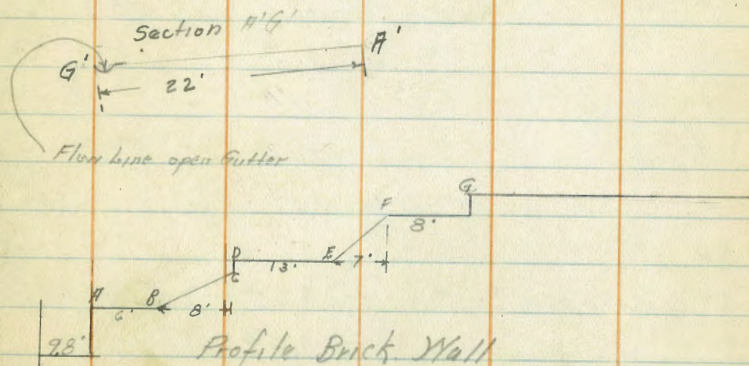 Section A'G'
G'
A'
22'
Flow Line open Gutter
G
F
8'
D
E
13'
7'
C
A
B
6'
8'
98'
Profile Brick Wall